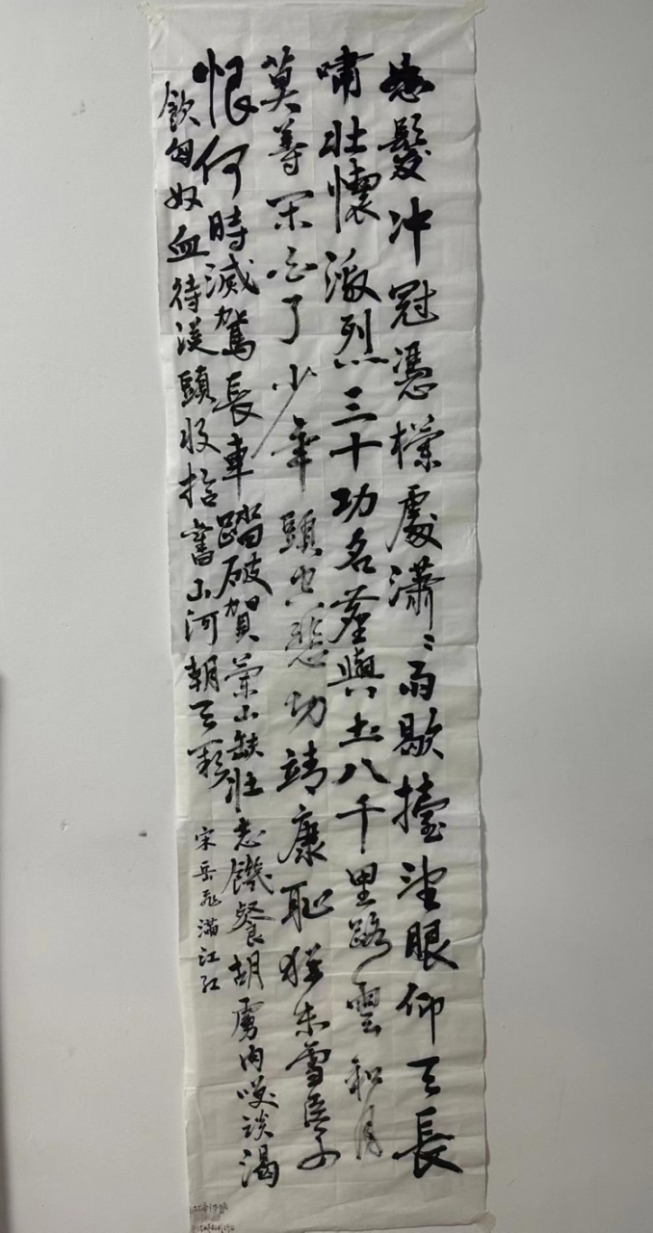 怒髮冲冠憑欄處瀟〻雨歇擡望眼仰天長
嘯壯懷激烈三十功名塵與土八千里路雲和月
莫等閑白了少年頭空悲切靖康恥猶未雪臣子
恨何時滅駕長車踏破賀蘭山缺壯志饑餐胡虜肉笑談渴
飲匈奴血待從頭收拾舊山河朝天闕
宋岳飛滿江紅